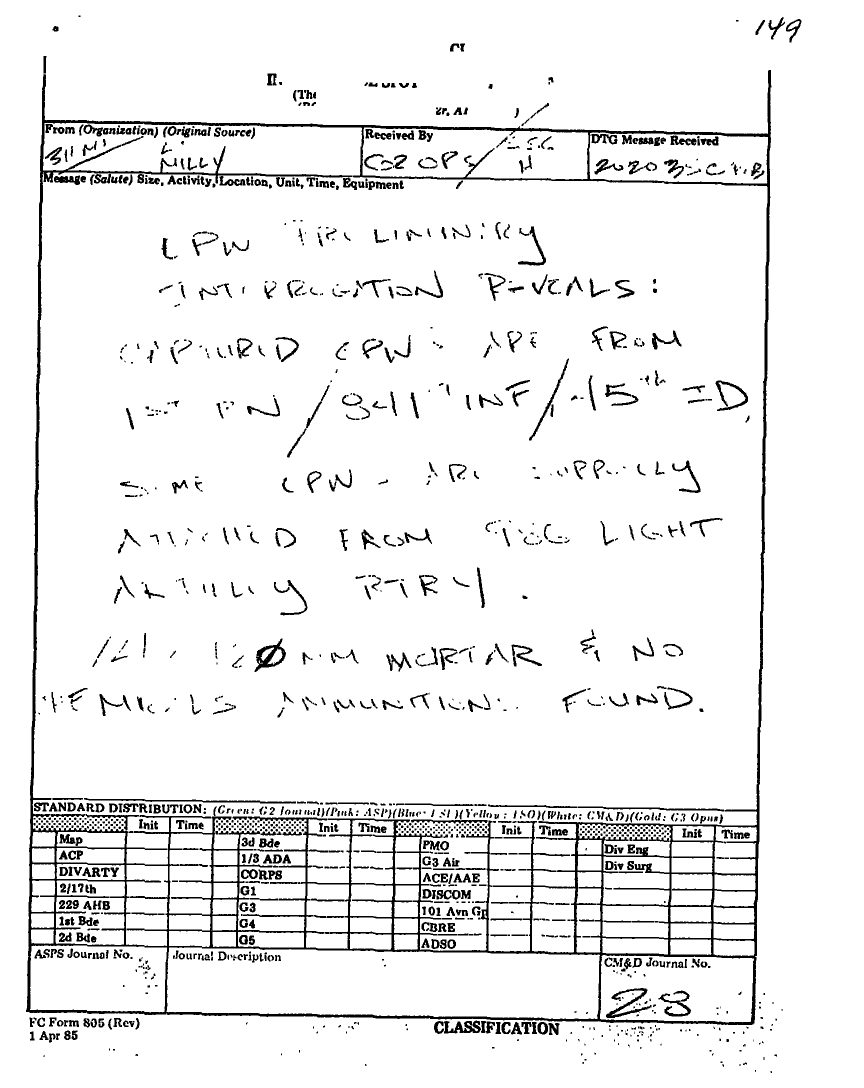 149
II.
From (Organization) (Original Source)
Received By
DTG Message Received
311 MI
L. MILLY
G2 OPS
202023
Message (Salute) Size, Activity, Location, Unit, Time, Equipment
EPW PRELIMINIRY
INTERROGATION REVEALS:
CAPTURED EPW'S ARE FROM
1ST BN / 841TH INF / 45th ID,
SOME EPW'S ARE
ATTACHED FROM LIGHT
ARTILLRY BTRY.
120MM MORTAR & NO
CHEMICALS AMMUNITIONS FOUND.
STANDARD DISTRIBUTION: (Green: G2 Journal)(Pink: ASP)(Blue: )(Yellow: )(White: CM&D)(Gold: G3 Opns)
Init Time Init Time Init Time Init Time
Map 3d Bde PMO Div Eng
ACP 1/3 ADA G3 Air Div Surg
DIVARTY CORPS ACE/AAE
2/17th G1 DISCOM
229 AHB G3 101 Avn Gp
1st Bde G4 CBRE
2d Bde G5 ADSO
ASPS Journal No. Journal Description CM&D Journal No.
28
FC Form 805 (Rev)
1 Apr 85
CLASSIFICATION